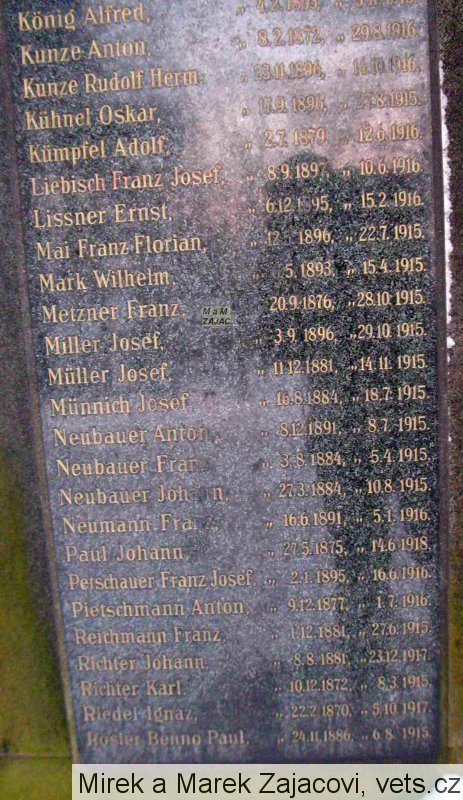 König Alfred, „ 4.2.1895,
Kunze Anton, „ 8.2.1872, „ 29.8.1916.
Kunze Rudolf Herm. „ 23.11.1896, „ 16.10.1916.
Kühnel Oskar, „ 17.9.1896, 8.1915.
Kümpfel Adolf, „ 2.7.1879, „ 12.6.1916.
Liebisch Franz Josef, „ 8.9.1897, „ 10.6.1916.
Lissner Ernst, „ 6.12.1895, „ 15.2.1916.
Mai Franz Florian, „ 1896, „ 22.7.1915.
Mark Wilhelm, „ 5.1893, „ 15.4.1915.
Metzner Franz. 20.9.1876, „ 28.10.1915.
M a M
ZAJAC
Miller Josef, „ 3.9.1896, „ 29.10.1915.
Müller Josef, „ 11.12.1881, „ 14.11.1915.
Münnich Josef „ 16.8.1884, „ 18.7.1915.
Neubauer Anton, „ 8.12.1891, „ 8.7.1915.
Neubauer Franz „ 3.8.1884, „ 5.4.1915.
Neubauer Johann, „ 27.3.1884, „ 10.8.1915.
Neumann Franz, „ 16.6.1891, „ 5.1.1916.
Paul Johann, „ 27.5.1875, „ 14.6.1918.
Petschauer Franz Josef, „ 2.1.1895, „ 16.6.1916.
Pietschmann Anton, „ 9.12.1877, „ 1.7.1916.
Reichmann Franz, „ 1.12.1881, „ 27.6.1915.
Richter Johann, „ 8.8.1881, „ 23.12.1917.
Richter Karl, „ 10.12.1872, „ 8.3.1915.
Riedel Ignaz, „ 22.2.1870, „ 5.10.1917.
Rösler Benno Paul, „ 24.11.1886, „ 6.8.1915.
Mirek a Marek Zajacovi, vets.cz